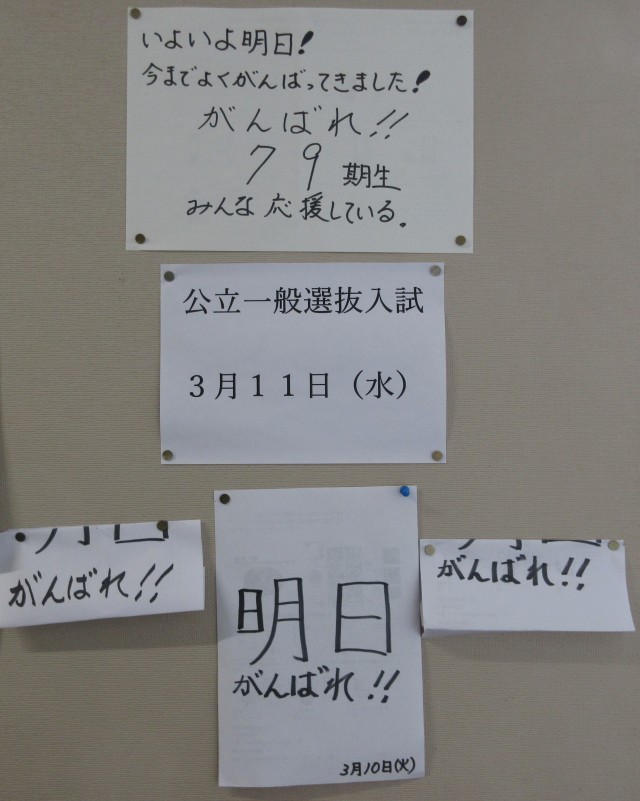 いよいよ明日!
今までよくがんばってきました!
がんばれ!!
79期生
みんな応援している.
公立一般選抜入試
3月11日(水)
がんばれ!!
明日
がんばれ!!
3月10日(火)
がんばれ!!